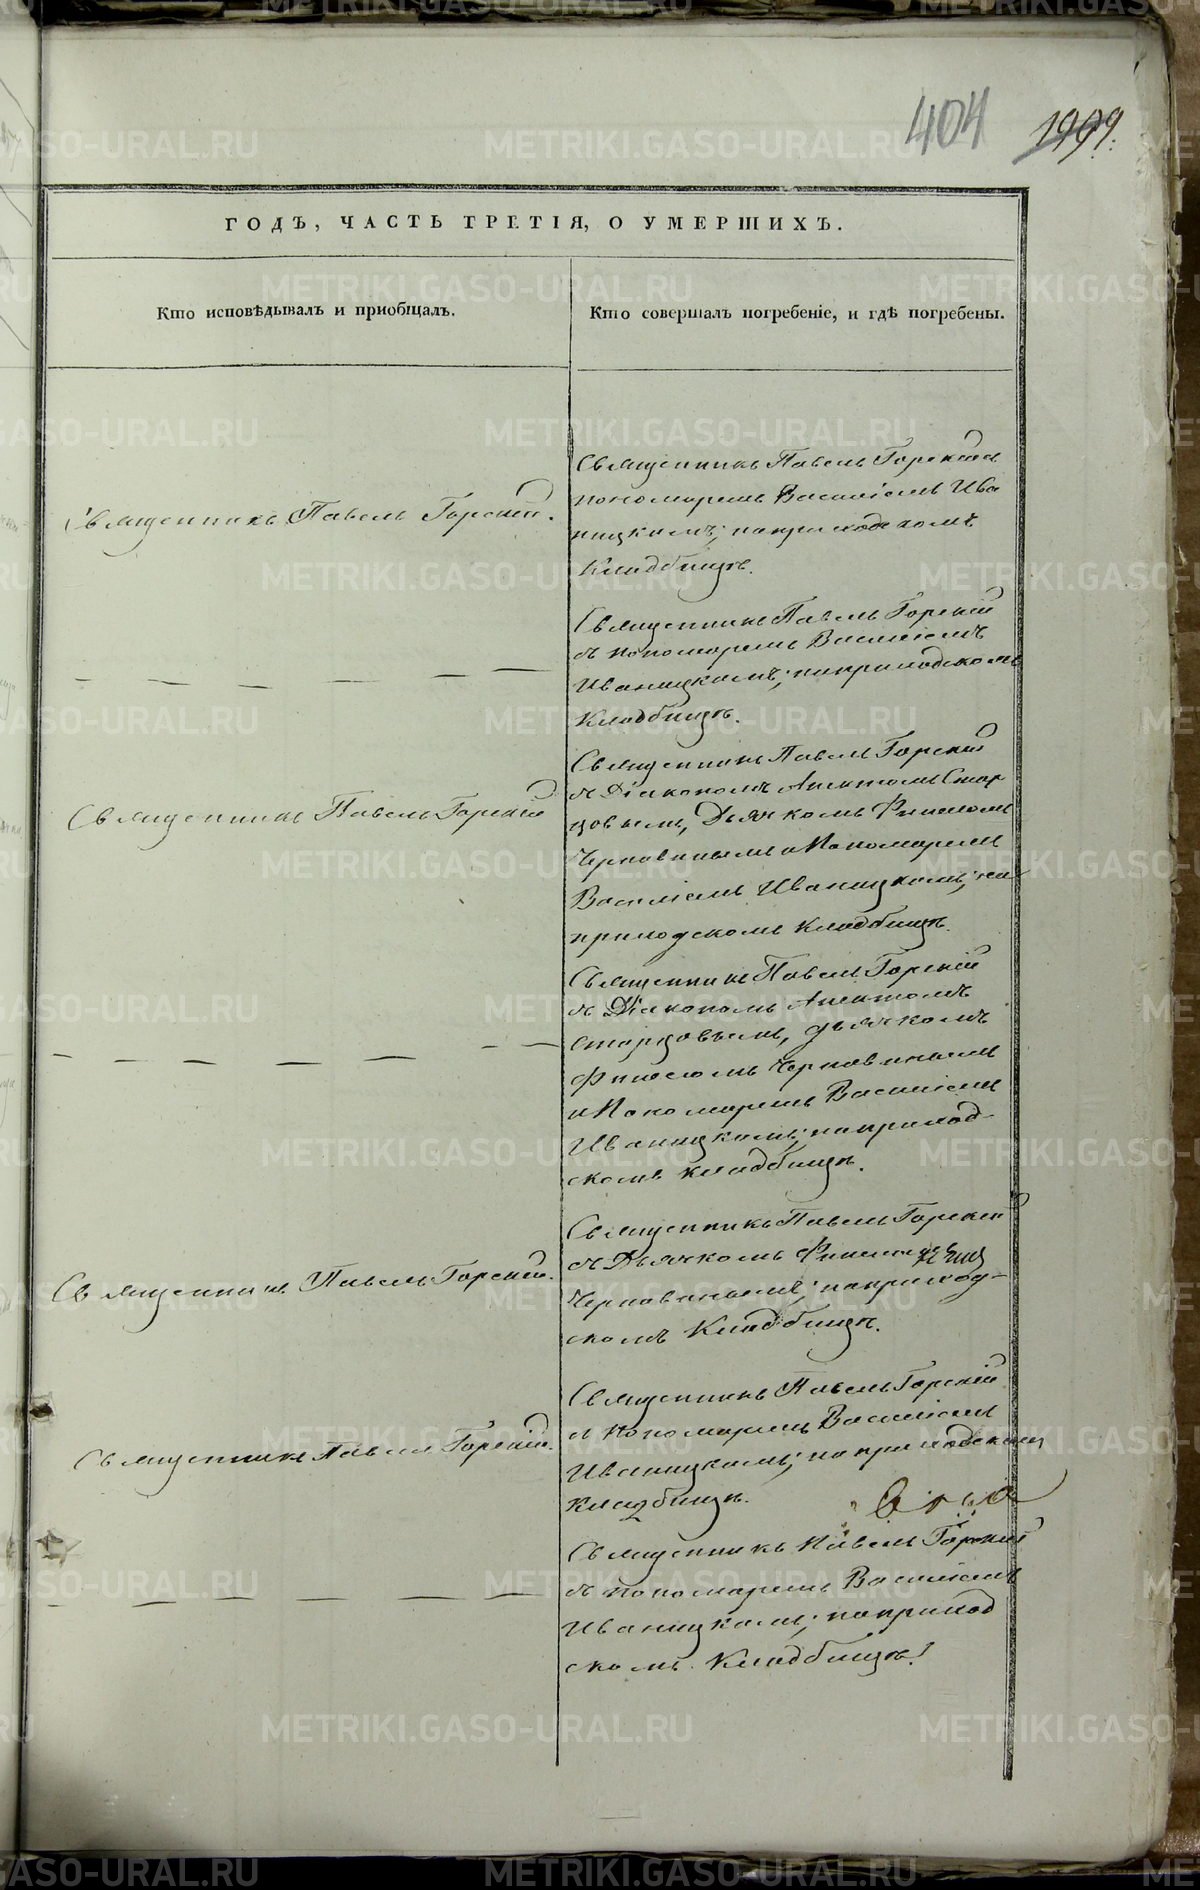 404 1999.
ГОДЪ, ЧАСТЬ ТРЕТІЯ, О УМЕРШИХЪ.
Кто исповѣдывалъ и пріобщалъ.
Кто совершалъ погребеніе, и гдѣ погребены.
Священникъ Павелъ Горскій.
Священникъ Павелъ Горскій съ
пономаремъ Василіемъ Ива
ницкимъ; на приходскомъ
Кладбищѣ.
Священникъ Павелъ Горскій
съ пономаремъ Василіемъ
Иваницкимъ; на приходскомъ
Кладбищѣ.
Священникъ Павелъ Горскій
Священникъ Павелъ Горскій
съ Діакономъ Аникитомъ Стар
цовымъ, Дьячкомъ Финеесомъ
Черновинымъ и Пономаремъ
Василіемъ Иваницкимъ; на
приходскомъ кладбищѣ.
Священникъ Павелъ Горскій
съ Діакономъ Аникитомъ
Старцовымъ, дьячкомъ
Финеесомъ Черновинымъ
и Пономаремъ Василіемъ
Иваницкимъ; на приход-
скомъ кладбищѣ.
Священникъ Павелъ Горскій.
Священникъ Павелъ Горскій
съ Дьячкомъ
Черновинымъ; на приход-
скомъ Кладбищѣ.
Священникъ Павелъ Горскій.
Священникъ Павелъ Горскій
съ Пономаремъ Василіемъ
Иваницкимъ; на приходскомъ
кладбищѣ.
Священникъ Павелъ Горскій
съ пономаремъ Василіемъ
Иваницкимъ; на приход
скомъ Кладбищѣ.
METRIKI.GASO-URAL.RU